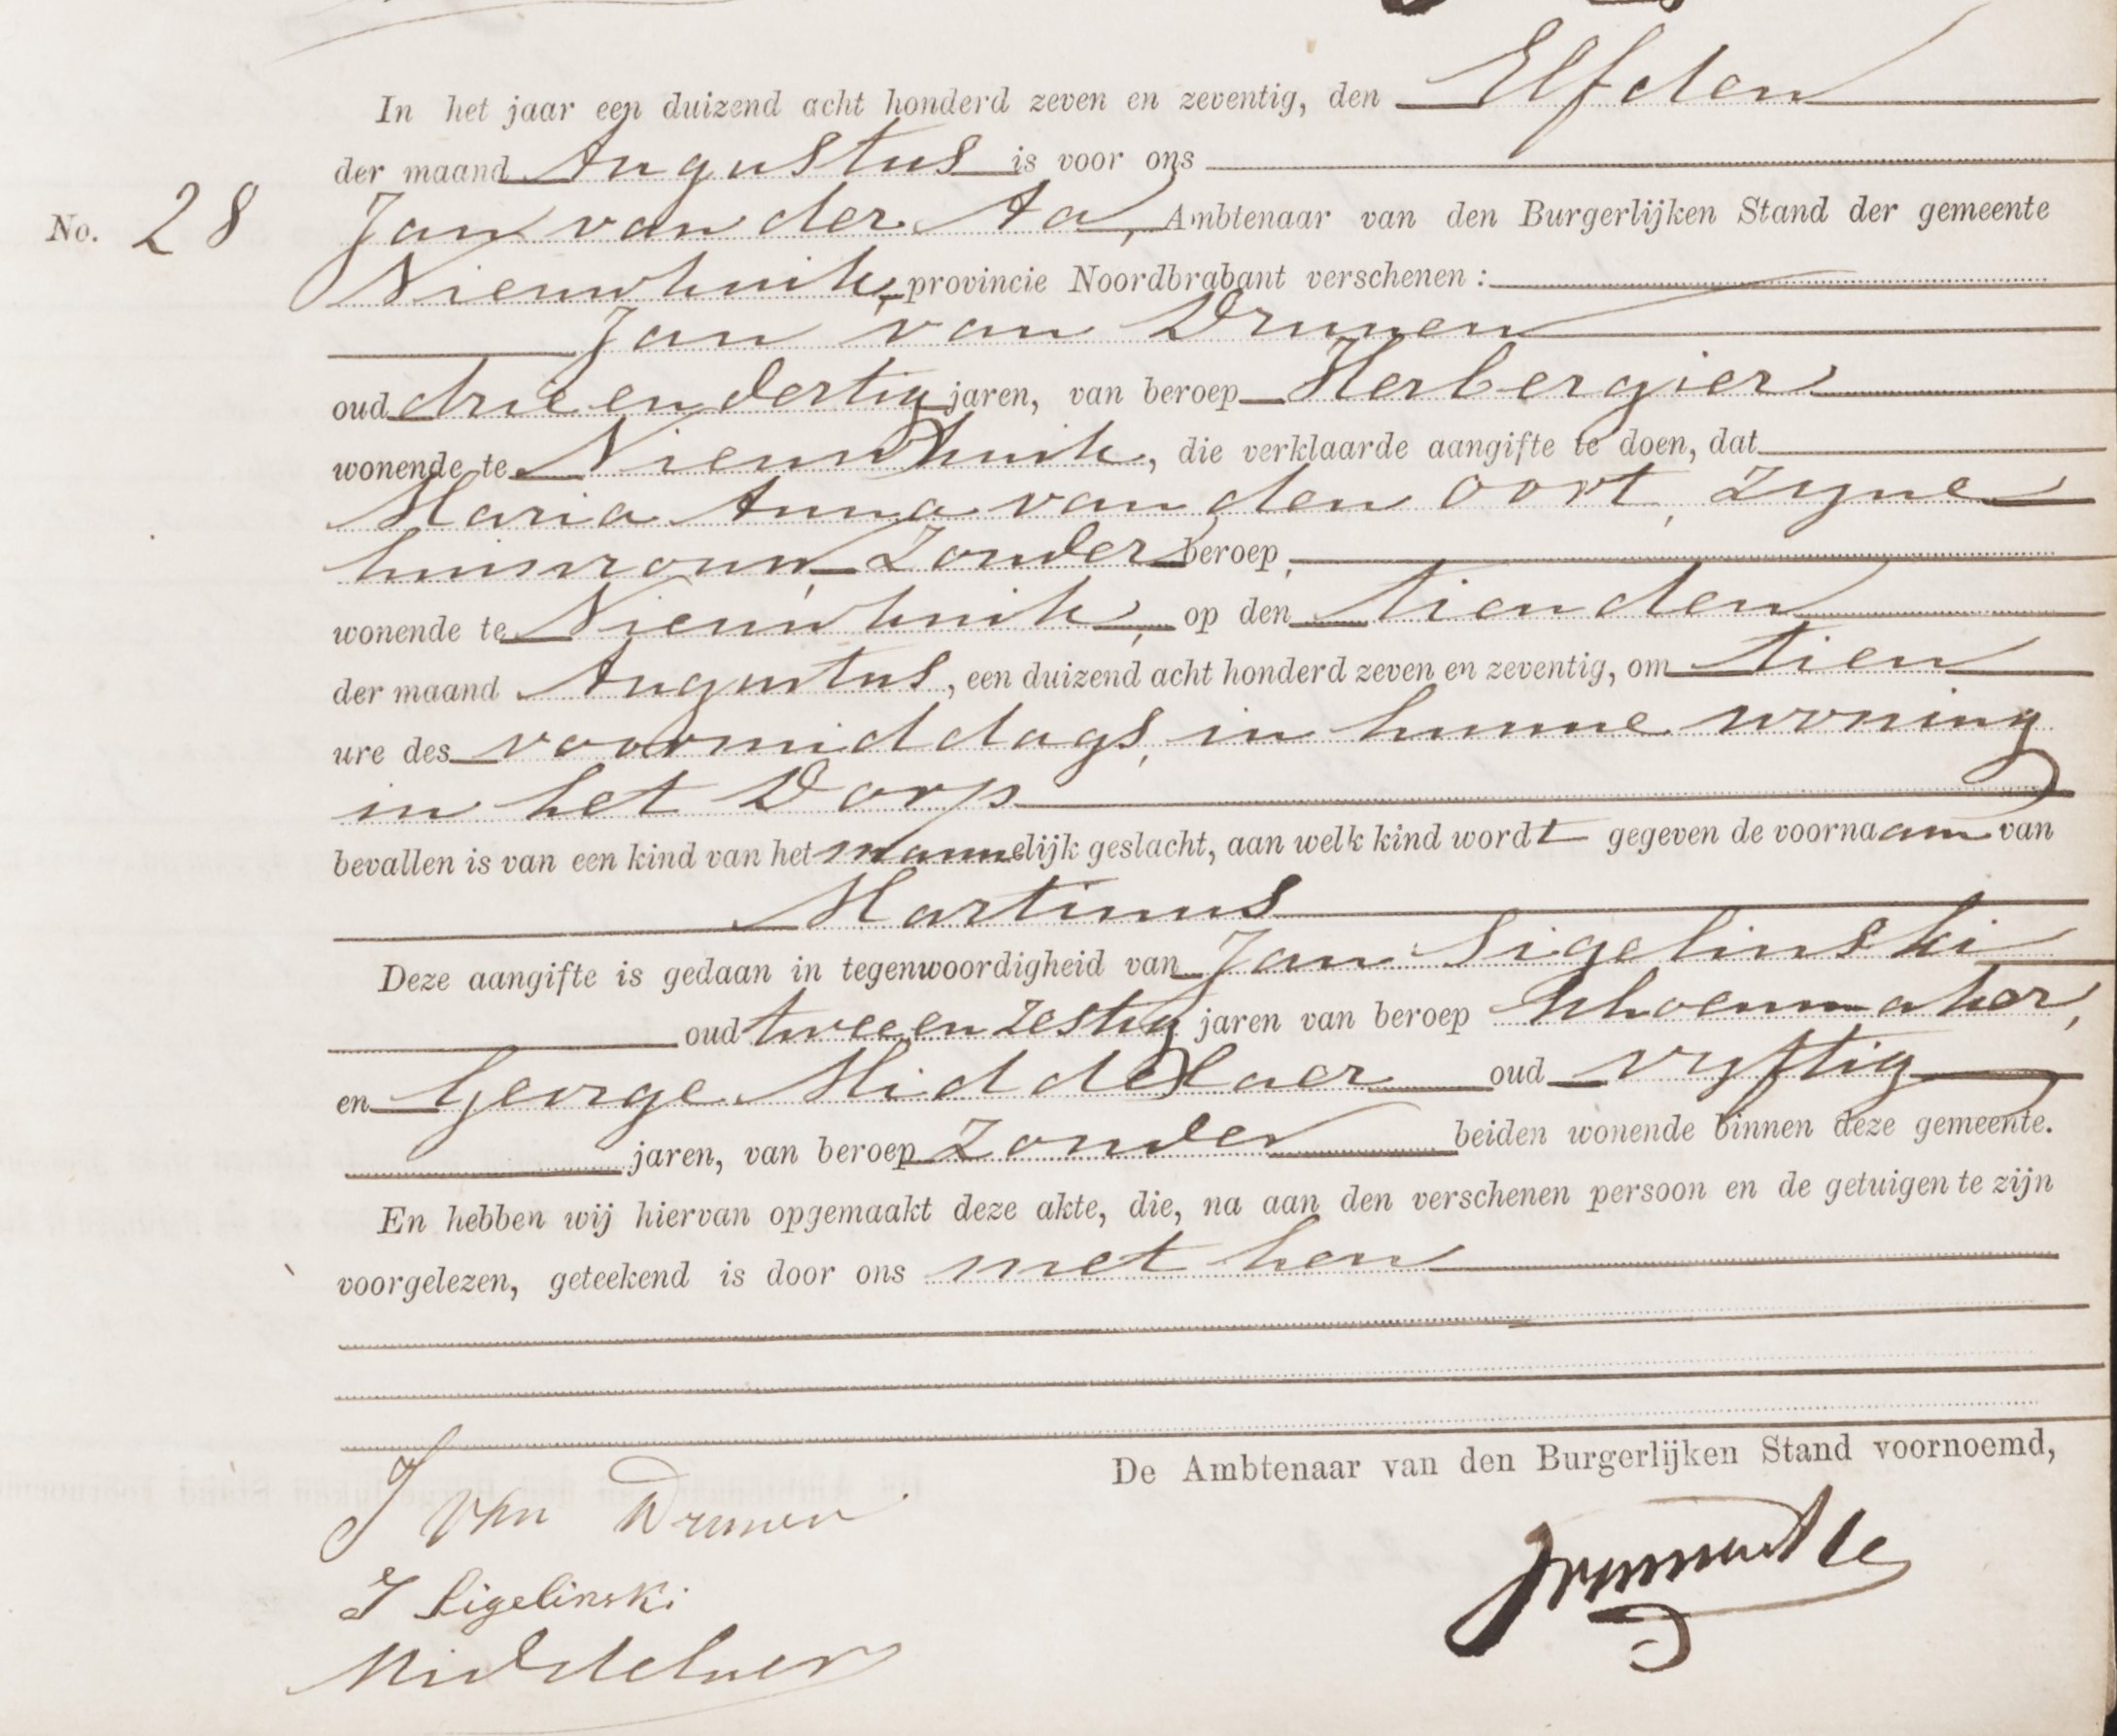 In het jaar een duizend acht honderd zeven en zeventig, den Elfden
der maand Augustus is voor ons
No. 28 Jan van der Aa, Ambtenaar van den Burgerlijken Stand der gemeente
Nieuwkuik, provincie Noordbrabant verschenen:
Jan van Drunen
oud drie en dertig jaren, van beroep Herbergier
wonende te Nieuwkuik, die verklaarde aangifte te doen, dat
Maria Anna van den Oort, zyne
huisvrouw, Zonder beroep,
wonende te Nieuwkuik, op den tienden
der maand Augustus, een duizend acht honderd zeven en zeventig, om tien
ure des voormiddags, in hunne woning
in het Dorp
bevallen is van een kind van het mannelijk geslacht, aan welk kind wordt gegeven de voornaam van
Martinus
Deze aangifte is gedaan in tegenwoordigheid van Jan Sigelinski
oud twee en zestig jaren van beroep Schoenmaker,
en George Middelaer oud vyftig
jaren, van beroep Zonder beiden wonende binnen deze gemeente.
En hebben wij hiervan opgemaakt deze akte, die, na aan den verschenen persoon en de getuigen te zijn
voorgelezen, geteekend is door ons met hen
De Ambtenaar van den Burgerlijken Stand voornoemd,
J van Drunen
J Sigelinski
Middelaer